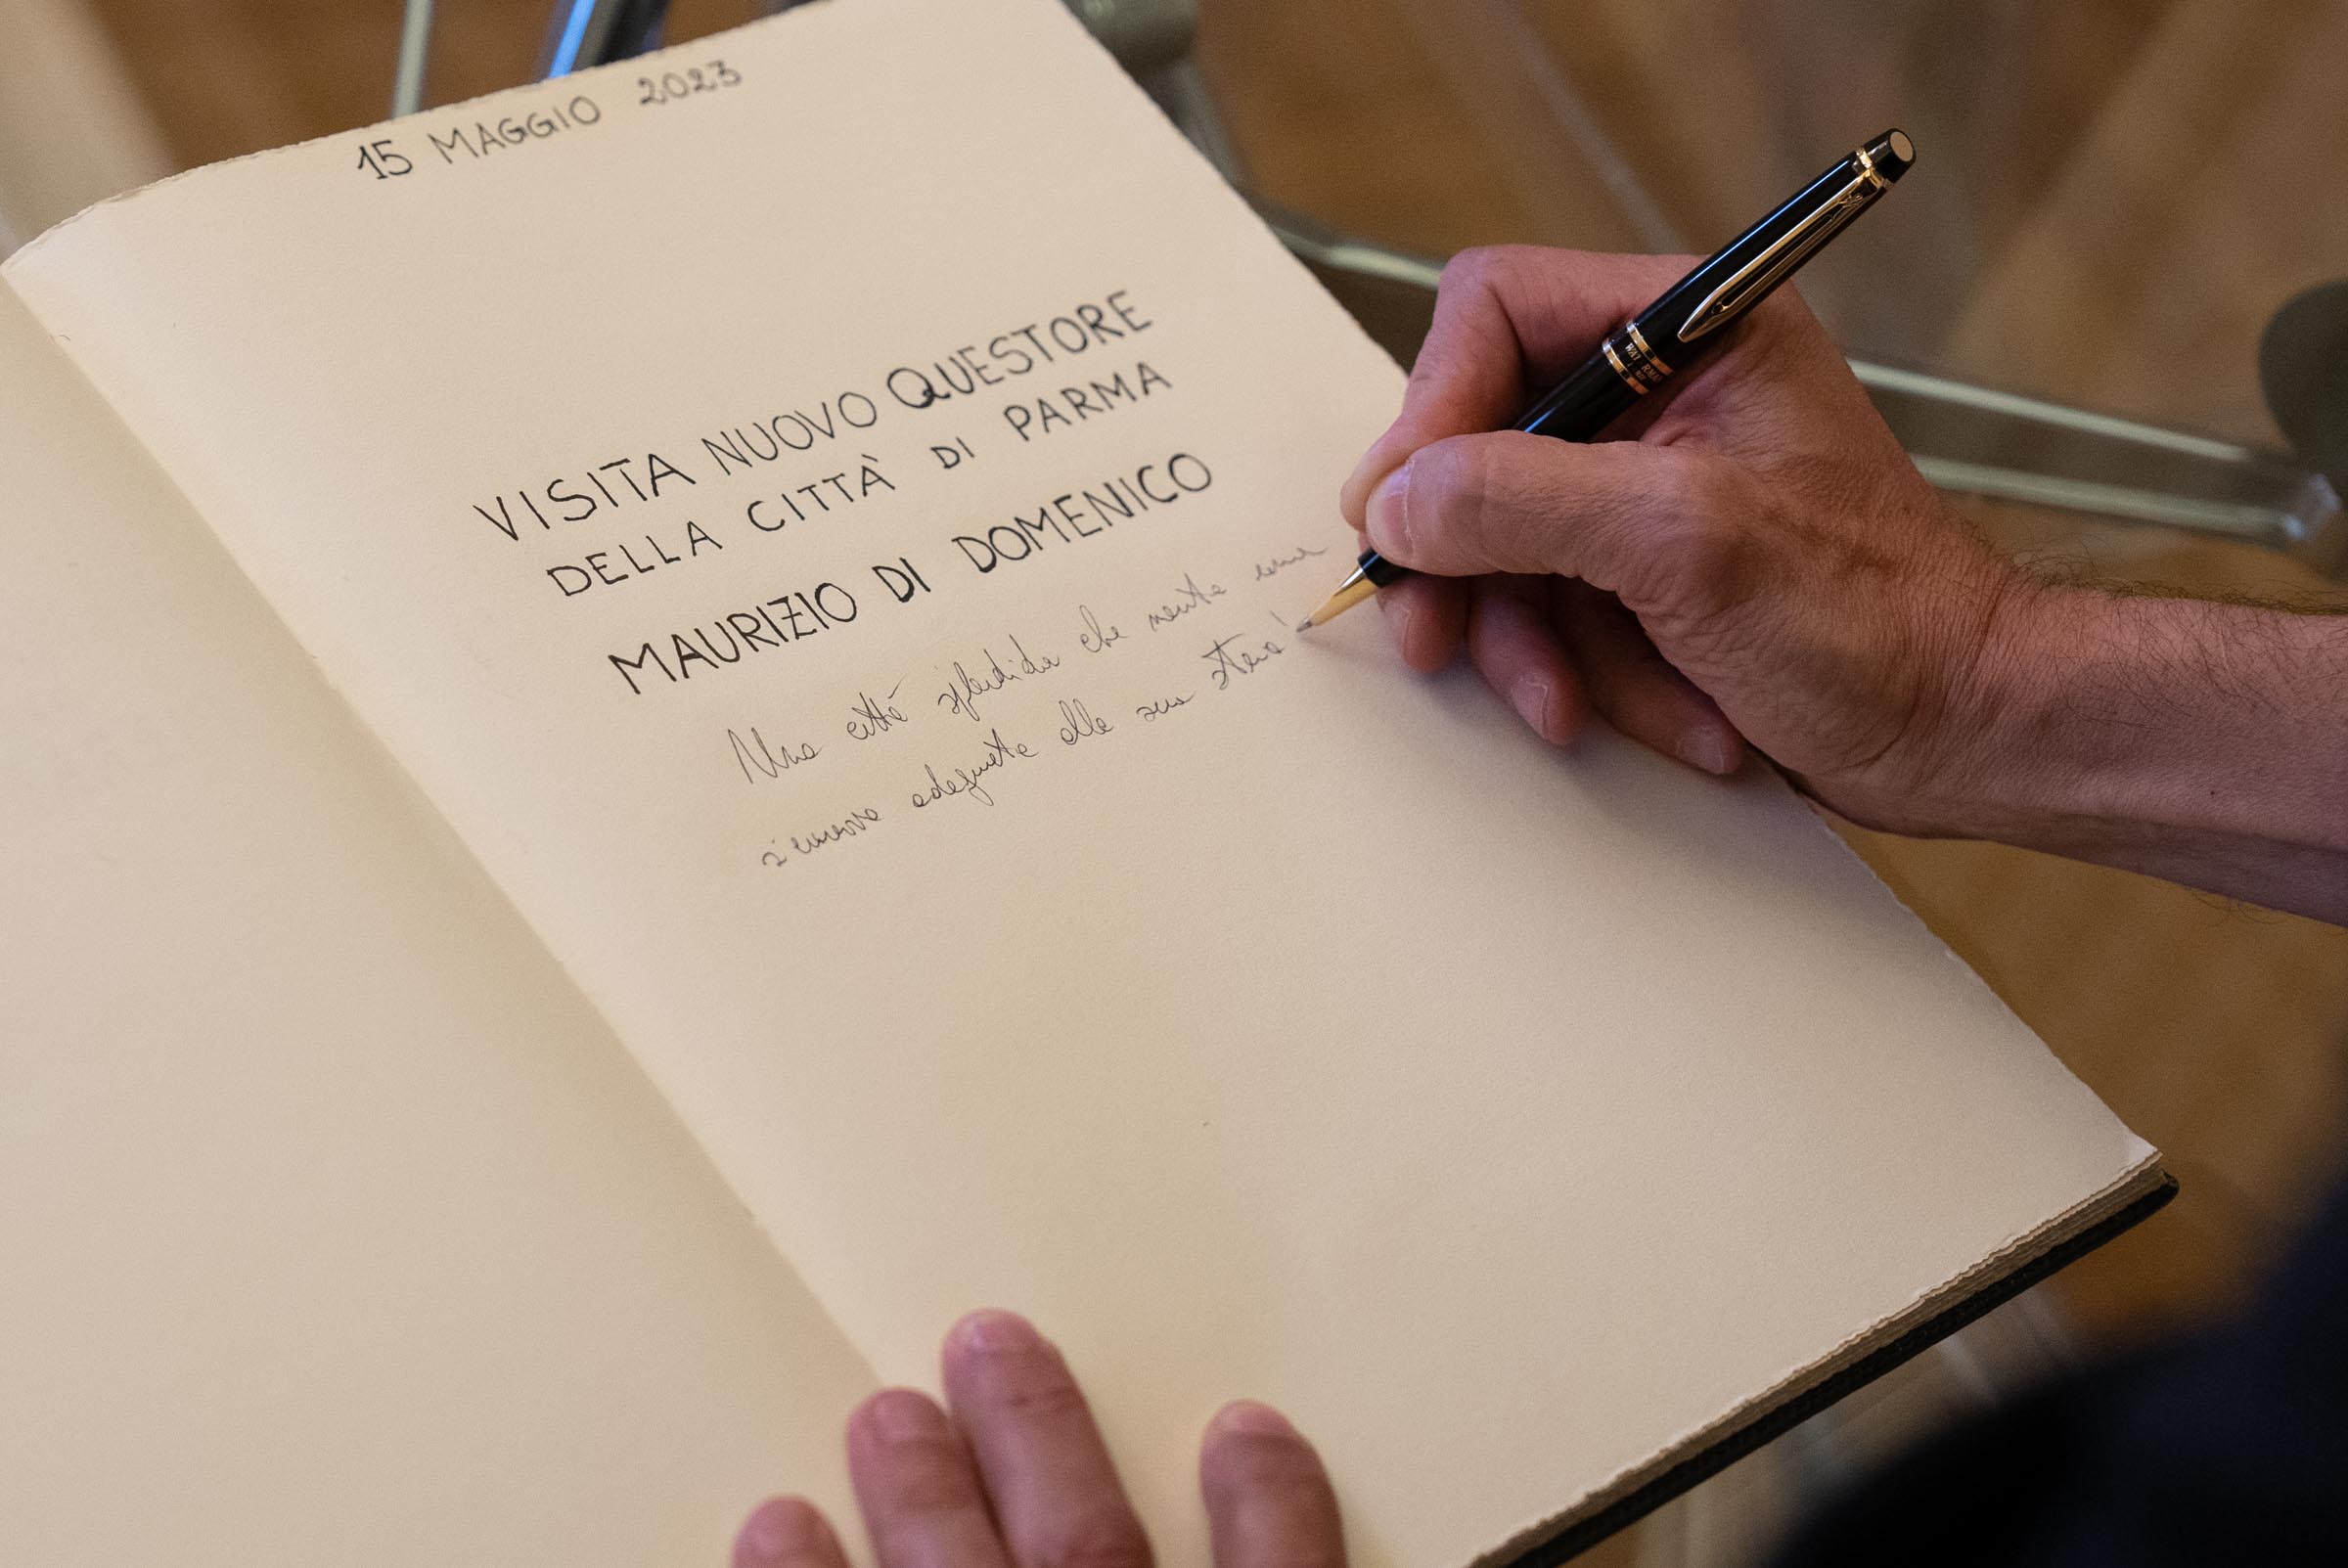 15 MAGGIO 2023
VISITA NUOVO QUESTORE
DELLA CITTÀ DI PARMA
MAURIZIO DI DOMENICO
Una città splendida che merita una
sicurezza adeguata alla sua
WATERMAN